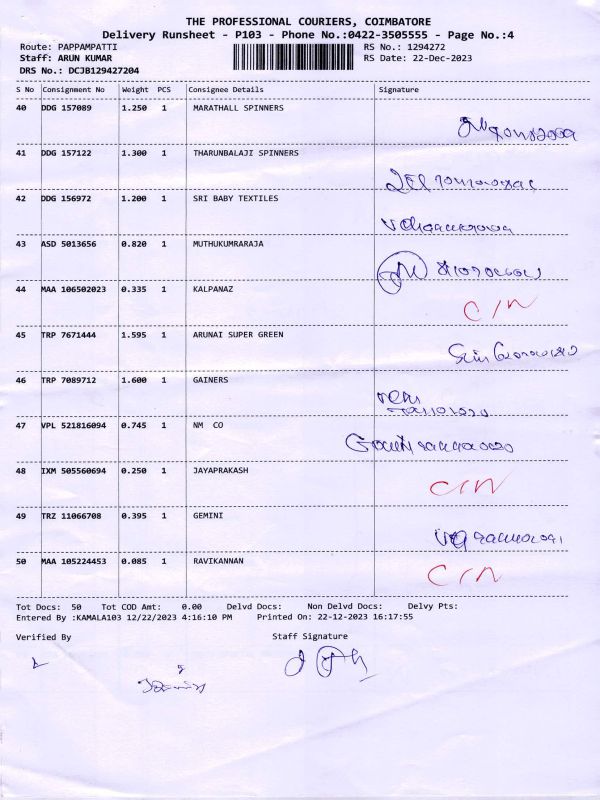 THE PROFESSIONAL COURIERS, COIMBATORE
Delivery Runsheet - P103 - Phone No.:0422-3505555 - Page No.:4
Route: PAPPAMPATTI RS No.: 1294272
Staff: ARUN KUMAR RS Date: 22-Dec-2023
DRS No.: DCJB129427204
S No Consignment No Weight PCS Consignee Details Signature
40 DDG 157089 1.250 1 MARATHALL SPINNERS
41 DDG 157122 1.300 1 THARUNBALAJI SPINNERS
42 DDG 156972 1.200 1 SRI BABY TEXTILES
43 ASD 5013656 0.820 1 MUTHUKUMRARAJA
44 MAA 106502023 0.335 1 KALPANAZ
C/N
45 TRP 7671444 1.595 1 ARUNAI SUPER GREEN
46 TRP 7089712 1.600 1 GAINERS
47 VPL 521816094 0.745 1 NM CO
48 IXM 505560694 0.250 1 JAYAPRAKASH
C/N
49 TRZ 11066708 0.395 1 GEMINI
50 MAA 105224453 0.085 1 RAVIKANNAN
C/N
Tot Docs: 50 Tot COD Amt: 0.00 Delvd Docs: Non Delvd Docs: Delvy Pts:
Entered By :KAMALA103 12/22/2023 4:16:10 PM Printed On: 22-12-2023 16:17:55
Verified By Staff Signature